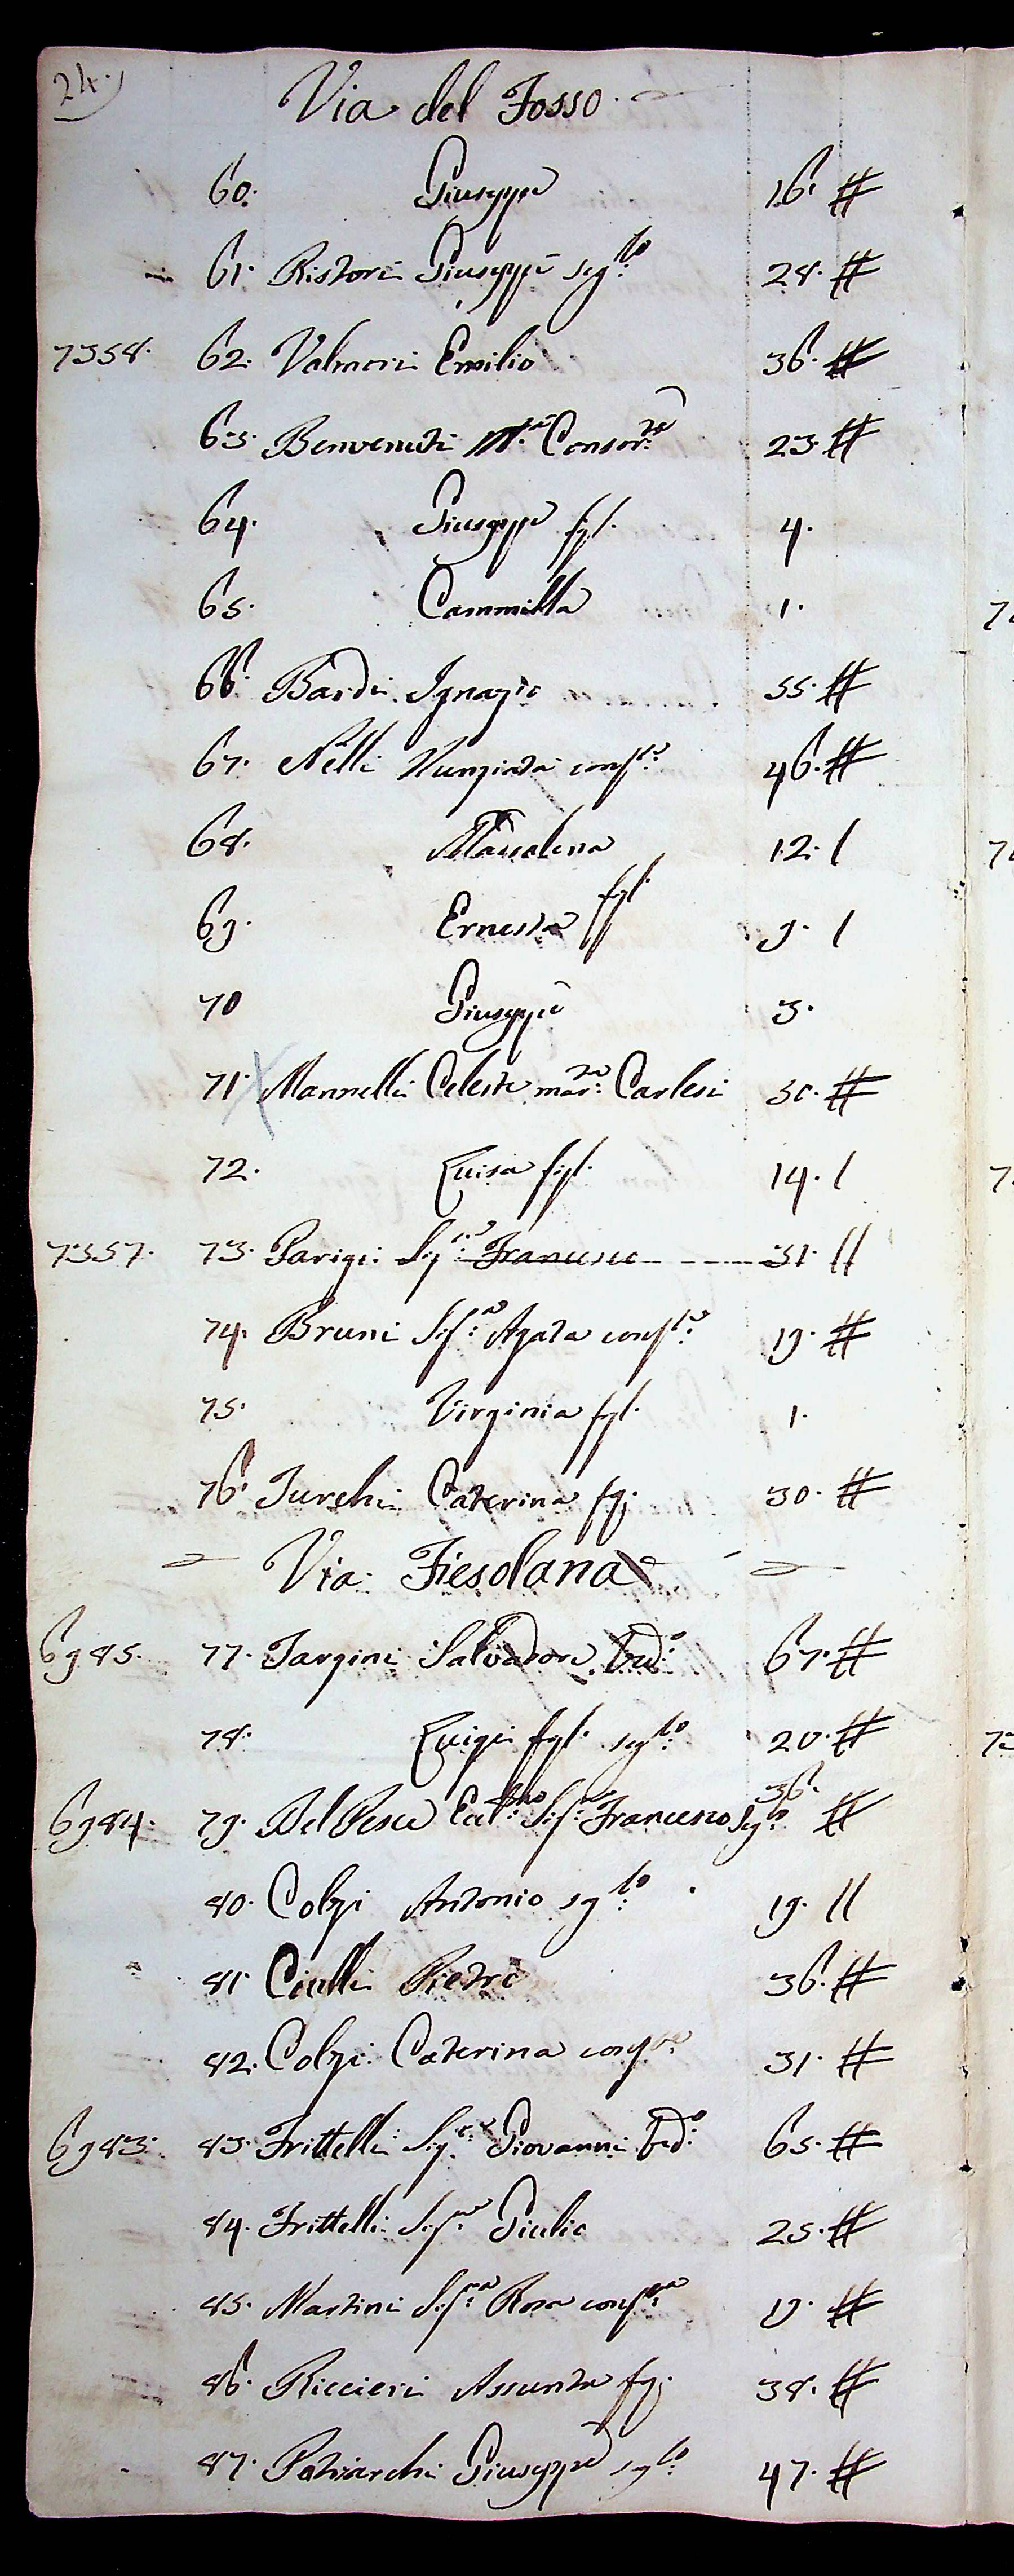 24.
Via del Fosso
60. Giuseppe 16. #
61. Ristori Giuseppe sg.lo 28. #
7358. 62. Valmori Emilio 36. #
63. Benvenuti M.a Consor.te 23. #
64. Giuseppe figl. 4.
65. Cammilla 1.
66. Bardi Ignazio 55. #
67. Nelli Nunziata cons.te 46. #
68. Maddalena 12. /
69. Ernesta figl. 9. /
70 Giuseppe 3.
71. Mannelli Celeste mar.ta Carlesi 50. #
72. Luisa figl. 14. /
7357. 73. Parigi Sig.re Francesco 31. //
74. Bruni Sig.a Agata cons.te 19. #
75. Virginia figl. 1.
76. Turchi Caterina fg; 30. #
Via Fiesolana
6985. 77. Targini Salvadore Ved.o 67. #
78. Luigi figl. sg.lo 20. #
6984. 79. Del Pesce Ecc.mo Sig.re Francesco Sg.lo 36. #
80. Colzi Antonio sg.lo 19. //
81. Ciulli Pietro 36. #
82. Colzi Caterina cong.e 31. #
6983. 83. Frittelli Sig.re Giovanni Ved.o 65. #
84. Frittelli Sig.re Giulio 25. #
85. Martini Sig.ra Rosa cons.te 19. #
86. Riccieri Assunta fg; 38. #
87. Patriarchi Giuseppe sg.lo 47. #